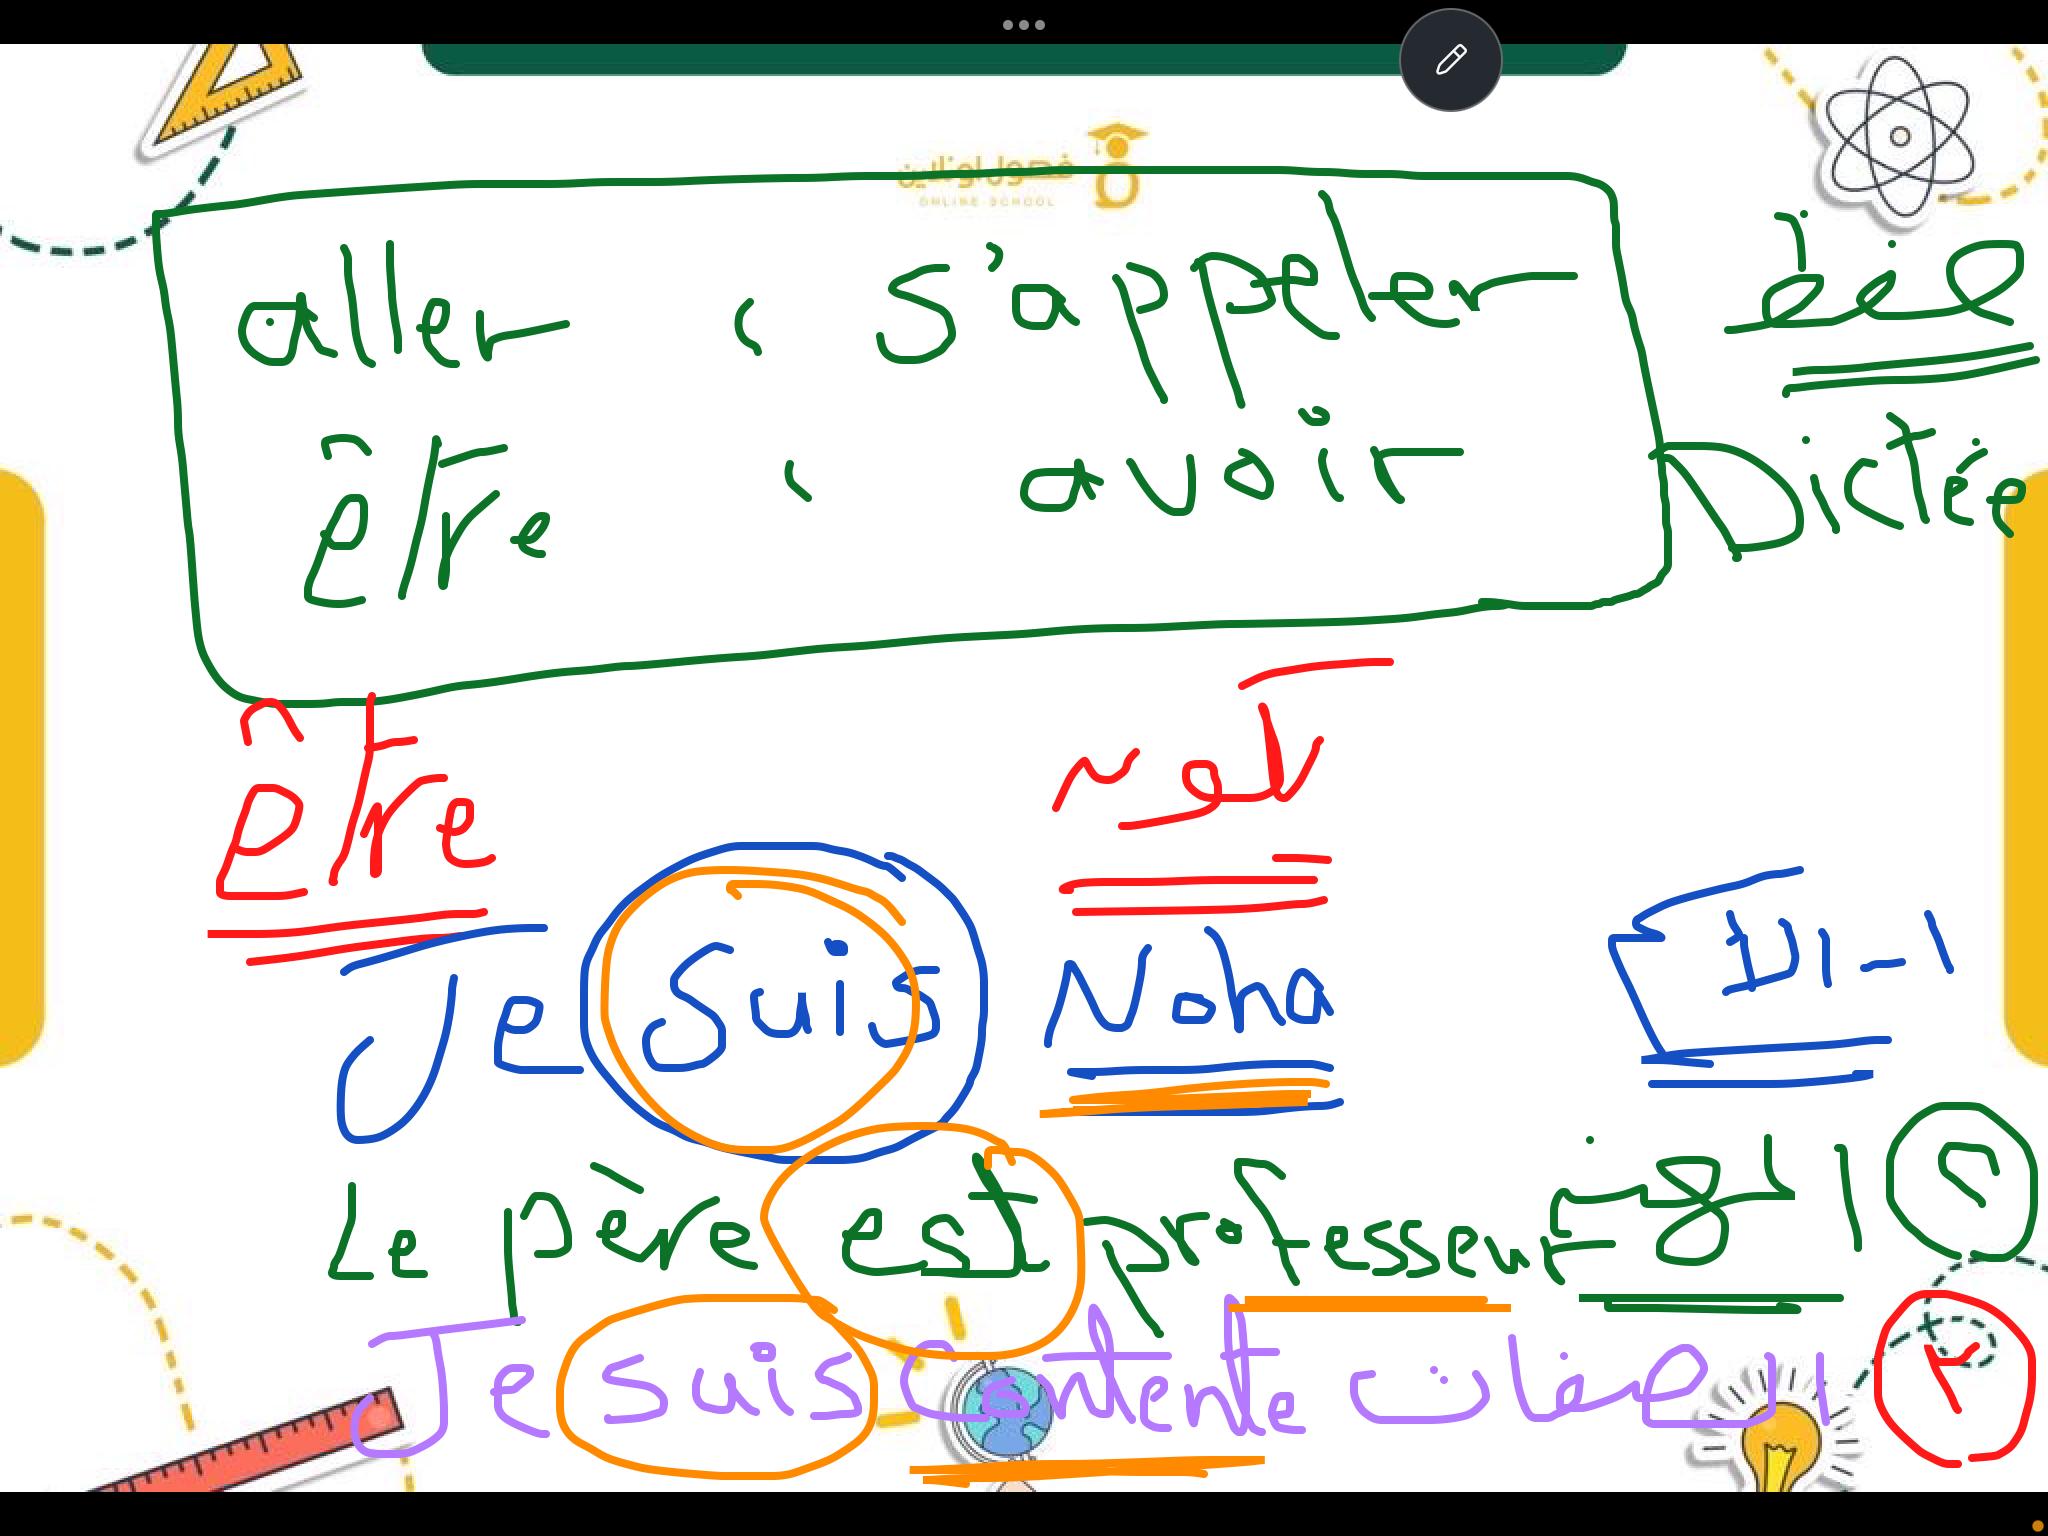 فصول اونلاين
ONLINE SCHOOL
aller ، s'appeler
être ، avoir
Dictée
être
Je suis Noha
Le père est professeur المهن ٢
Je suis contente الصفات ٣